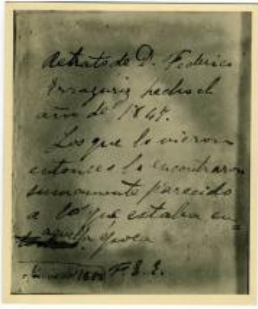 Retrato de D. Federico
Errazuriz hecho el
año de 1847.
Los que lo vieron
entonces lo encontraron
sumamente parecido
a lo que estaba en
aquella época
1888 F. E. E.